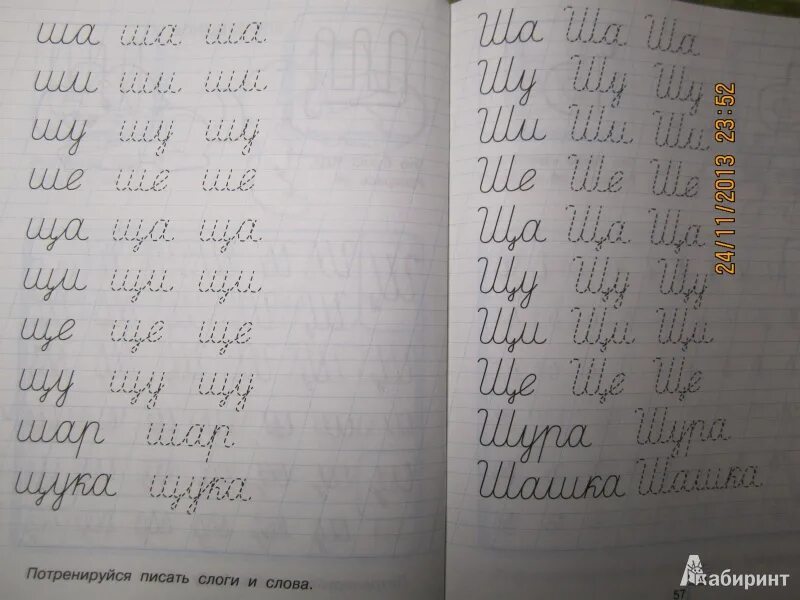 ша ша ша
ши ши ши
шу шу шу
ше ше ше
ща ща ща
щи щи щи
ще ще ще
щу щу щу
шар шар
щука щука
Потренируйся писать слоги и слова.
Ша Ша Ша
Шу Шу Шу
Ши Ши Ши
Ше Ше Ше
Ща Ща Ща
Щу Щу Щу
Щи Щи Щи
Ще Ще Ще
Шура Шура
Шашка Шашка
57
24/11/2013 23:52
Лабиринт